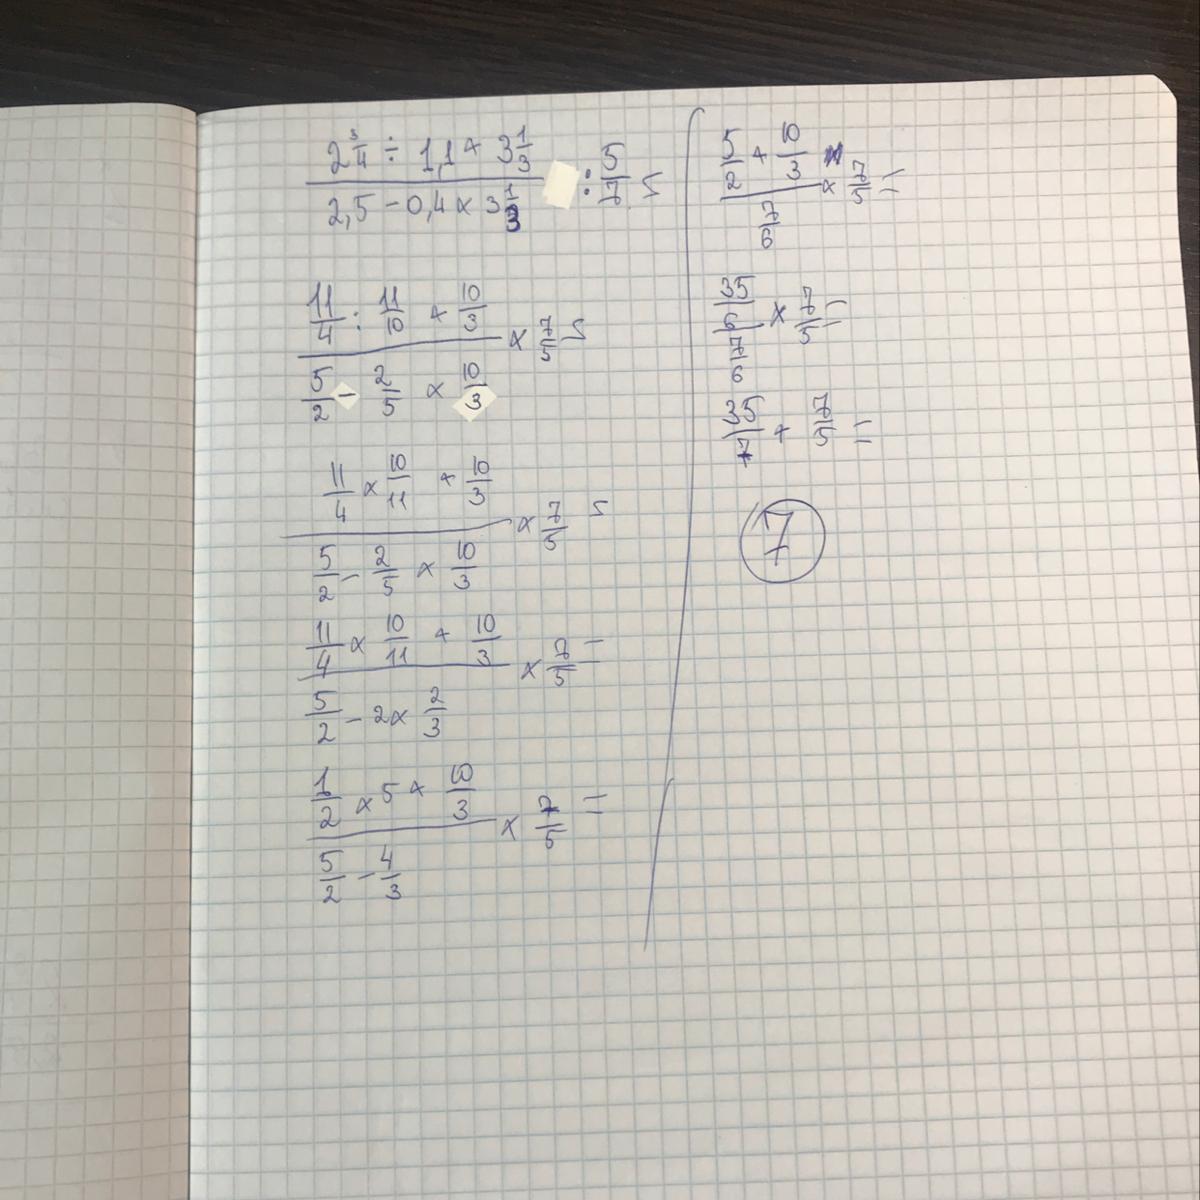 2 3/4 ÷ 1,1 + 3 1/3
2,5 - 0,4 × 3 1/3
: 5/7 =
11/4 : 11/10 + 10/3
5/2 - 2/5 × 10/3
× 7/5 =
11/4 × 10/11 + 10/3
5/2 - 2/5 × 10/3
× 7/5 =
11/4 × 10/11 + 10/3
5/2 - 2 × 2/3
× 7/5 =
1/2 × 5 + 10/3
5/2 - 4/3
× 7/5 =
5/2 + 10/3
7/6
× 7/5 =
35/6
7/6
× 7/5 =
35/7 + 7/5 =
7